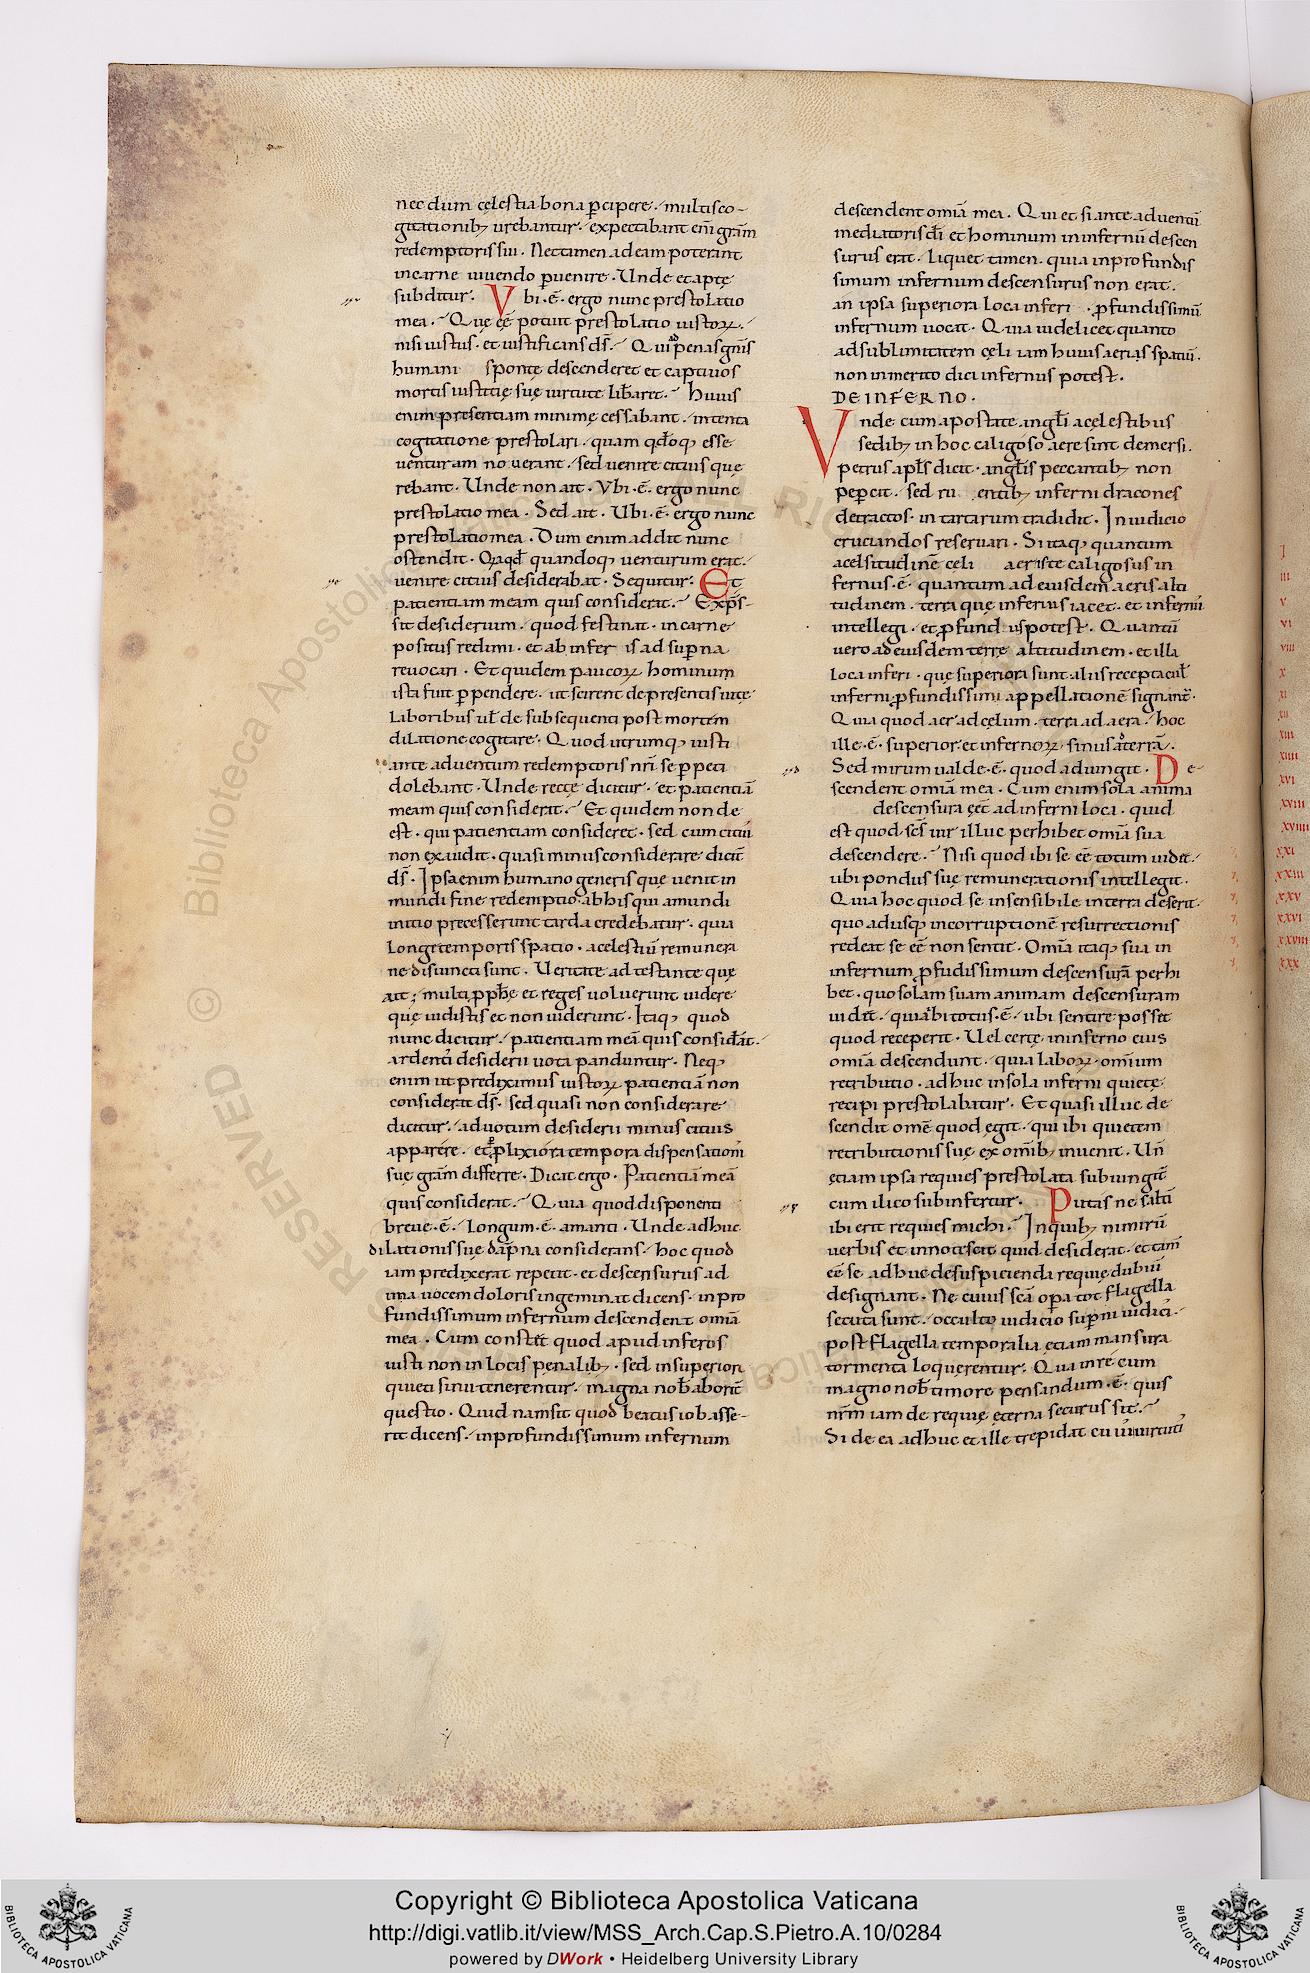 nec dum cęlestia bona ꝑcipere. multis co-
gitationib; urebantur. expectabant enī gram̄
redemptoris sui. Nec tamen ad eam poterant
in carne uiuendo ꝑuenire. Unde et apte
subditur. Vbi.ē. ergo nunc prestolatio
mea. Quę eē potuit prestolatio iustoꝝ.
nisi iustus. et iustificans ds̄. Qui ꝓ penas gn̄is
humani sponte descenderet et captiuos
mortis iustitię suę uirtute lib̄aret. huius
enim presentiam minime cessabant. intenta
cogitatione prestolari. quam qd̄oq; esse
uenturam nouerant. sed uenire citius que
rebant. Unde non ait. Vbi.ē. ergo nunc
prestolatio mea. Sed ait. Ubi.ē. ergo nunc
prestolatio mea. Dum enim addit nunc
ostendit. Q̄a qd̄ quandoq; uenturum erat.
uenire citius desiderabat. Sequitur. Et
patientiam meam quis considerat. Exp̄s-
sit desiderium. quod festinat. in carne
positus redimi. et ab inferis ad suꝑna
reuocari. Et quidem paucoꝝ hominum
ista fuit ꝑpendere. ut scirent de presentis uitę
laboribus ul̄ de subsequenti post mortem
dilatione cogitare. Quod utrumq; iusti
ante aduentum redemptoris nr̄i se ꝑpeti
dolebant. Unde recte dicitur. et patientiā
meam quis considerat. Et quidem non de
est. qui patientiam consideret. sed cum citiū
non exaudit. quasi minus considerare dicit̄
ds̄. Ipsa enim humano generis que uenit in
mundi fine redemptio. ab his qui a mundi
initio precesserunt tarda credebatur. quia
longe temporis spatio. a celestiū remunera
ne disiuncti sunt. Veritate adtestante que
ait; multi ꝓph̄e et reges uoluerunt uidere
quę uidistis et non uiderunt. Itaq; quod
nunc dicitur. patientiam meā quis consid̄at.
ardentī desiderii uota panduntur. Neq;
enim ut prediximus iustoꝝ patientiā non
considerat ds̄. sed quasi non considerare
dicitur. ad uotum desiderii minus citius
apparere. et ꝓlixiora tempora dispensationī
suę gram̄ differre. Dicat ergo. Patientiā meā
quis considerat. Quia quod disponenti
breue.ē. longum.ē. amanti. Unde adhuc
dilationis suę dāpna considerans. hoc quod
iam predixerat repetit. et descensurus ad
ima uocem doloris ingeminat dicens. in pro
fundissimum infernum descendent omīa
mea. Cum constet quod apud inferos
iusti non in locis penalib;. sed in superiori
quieti sinu tenerentur. magna nob̄ aborit̄
questio. Quid nam sit quod beatus iob asse-
rit dicens. in profundissimum infernum
descendent omīa mea. Qui et si ante aduentū
mediatoris dī et hominum in infernū descen
surus erat. liquet tamen. quia in profundis
simum infernum descensurus non erat.
an ipsa superiora loca inferi. ꝓfundissimū
infernum uocat. Quia uidelicet quanto
ad sublimitatem cęli iam huius aerias spatiū.
non inmerito dici infernus potest.
DE INFERNO.
Unde cum apostate angl̄i a celestibus
sedib; in hoc caligoso aere sint demersi.
petrus apl̄s dicit. angl̄is peccantib; non
peꝑcit. sed rudentib; inferni dracones
detractos. in tartarum tradidit. In iudicio
cruciandos reseruari. Si itaq; quantum
a celsitudinē celi aer iste caligosus in
fernus.ē. quantum ad eiusdem aeris alti
tudinem. terra quę inferius iacet. et infernū
intellegi. et ꝓfundus potest. Quantū
uero ad eiusdem terrę altitudinem. et illa
loca inferi. quę superiora sunt aliis receptacul̄
inferni ꝓfundissimi appellationē signant̄.
Quia quod aer ad cęlum. terra ad aera. hoc
ille.ē. superior et infernoꝝ sinus a terrā.
Sed mirum ualde.ē. quod adiungit. De-
scendent omīa mea. Cum enim sola anima
descensura eēt ad inferni loca. quid
est quod scs̄ uir illuc perhibet omīa sua
descendere. Nisi quod ibi se eē totum uidet̄.
ubi pondus suę remunerationis intellegit.
Quia hoc quod se insensibile in terra deserit.
quo adusq; incorruptionē resurrectionis
redeat se eē non sentit. Omīa itaq; sua in
infernum ꝓfudissimum descensurā perhi
bet. quo solam suam animam descensuram
uidit̄. quia ibi totus.ē. ubi sentire posset
quod receperit. Uel certe in inferno eius
omīa descendunt. quia laboꝝ omīum
retributio. adhuc in sola inferni quiete
recipi prestolabatur. Et quasi illuc de
scendit omē quod ęgit. qui ibi quietem
retributionis suę ex omīb; inuenit. Un̄
etiam ipsa requies prestolata subiungit̄
cum ilico subinfertur. Putas ne salti
ibi erit requies michi. In quib; nimirū
uerbis et innotescit quid desiderat. et tam̄
eē se adhuc de suspicienda requie dubiū
designant. Ne cuius scā oꝑa tot flagella
secuta sunt. occulto iudicio suꝑni iudici.
post flagella temporalia etiam mansura
tormenta loquerentur. Qua in re cum
magno nob̄ timore pensandum.ē. quis
nr̄m iam de requię ęterna securus sit.
Si de ea adhuc et ille trepidat cuius uirtuti
I
III
V
VI
VIII
X
XI
XII
XIII
XIIII
XVI
XVIII
XVIIII
XXI
XXIII
XXV
XXVI
XXVIII
XXX
© Biblioteca Apostolica Vaticana
RESERVED
Copyright © Biblioteca Apostolica Vaticana
http://digi.vatlib.it/view/MSS_Arch.Cap.S.Pietro.A.10/0284
powered by DWork • Heidelberg University Library
BIBLIOTECA APOSTOLICA VATICANA
BIBLIOTECA APOSTOLICA VATICANA